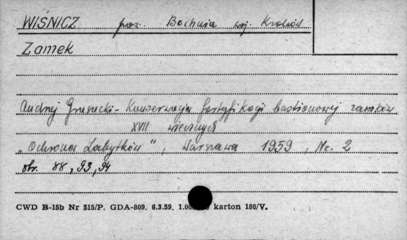 WIŚNICZ pow. Bochnia woj. Kraków
Zamek
Andrzej Gruszecki - Konserwacja fortyfikacji bastionowej zamków
XVII wiecznych
„Ochrona Zabytków", Warszawa 1959, Nr. 2
str. 88, 93, 94
CWD B-15b Nr 515/P. GDA-809. 6.3.59. karton 180/V.